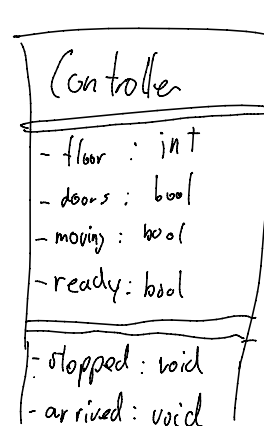 Controller
- floor : int
- doors : bool
- moving : bool
- ready : bool
- stopped : void
- arrived : void